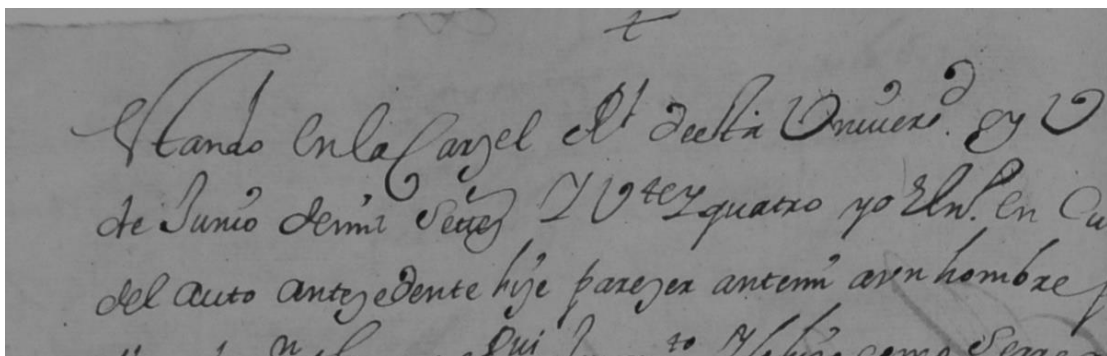 +
Stando en la Carzel Rl desta Univerd. oy V
de Junio de mil Setezs y Vte y quatro yo El no. en Cu
del auto antezedente hize parezer antemi a vn hombre
como